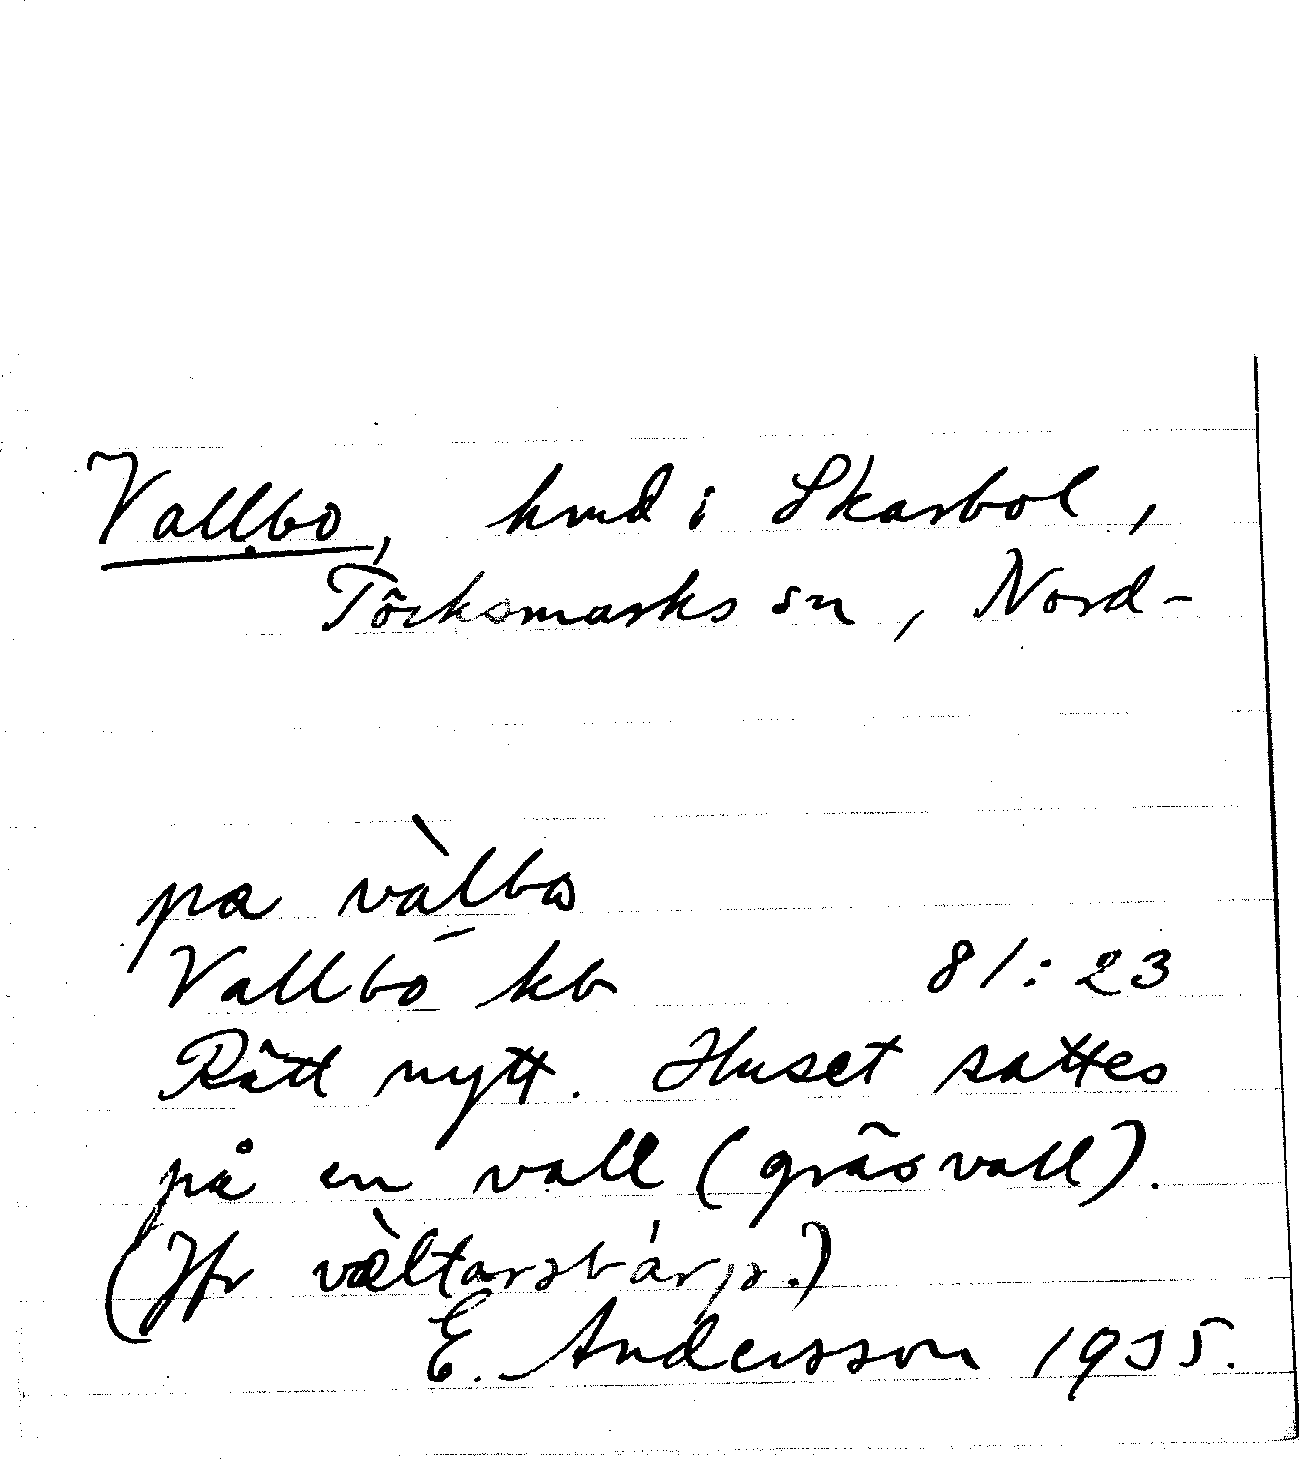 Vallbo, hmd i Skarbol,
Töcksmarks sn, Nord-
pa vàlbo
Vallbo kb 81:23
Rätt nytt. Huset sattes
på en vall (gräsvall).
(Jfr
E. Andersson 1935.